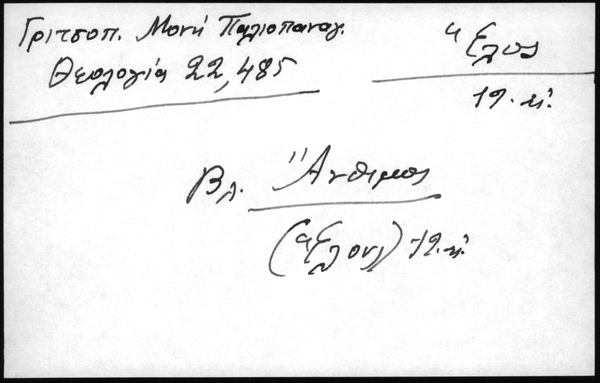 Γριτσοπ. Μονή Παλιοπαναγ.
Θεολογία 22, 485
Ἕλος
19. αἰ.
Βλ. Ἄνθιμος
(Ἕλους) 19. αἰ.